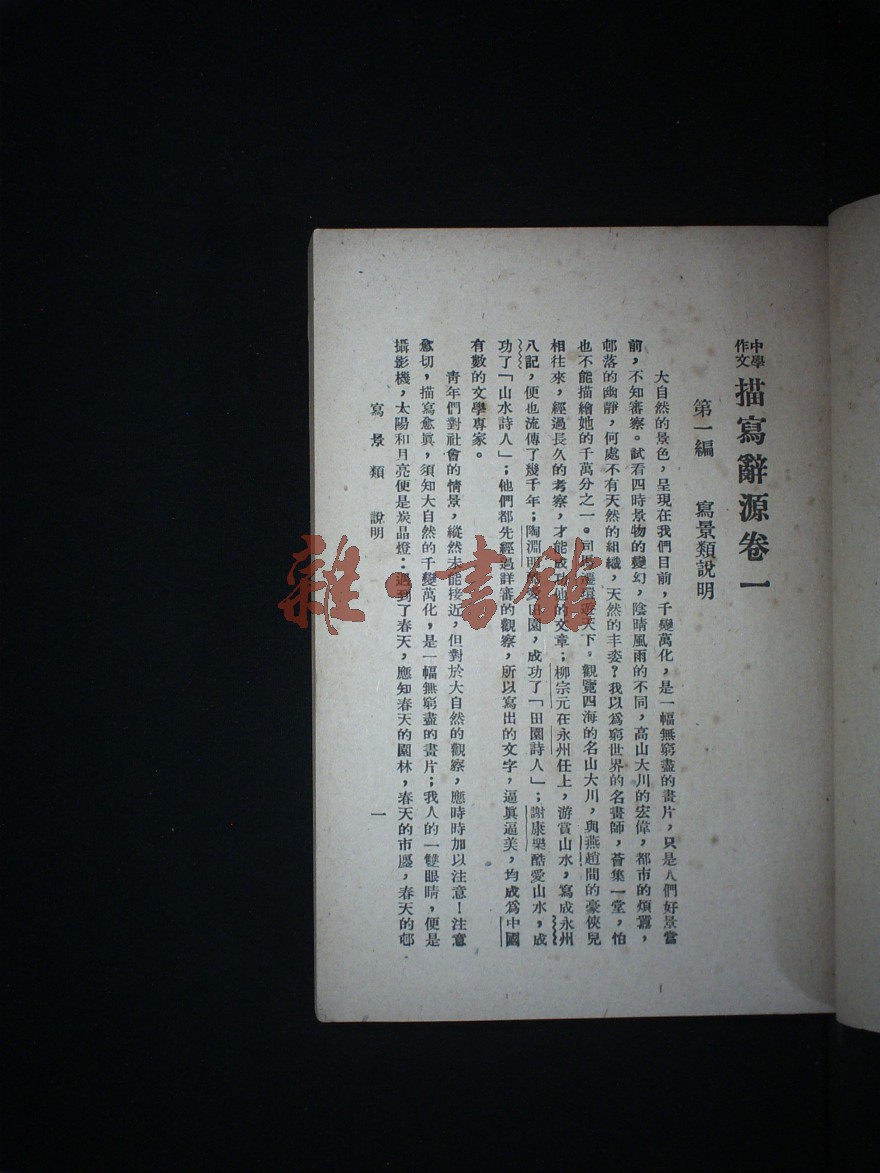 中學作文 描寫辭源卷一
第一編　寫景類說明
大自然的景色，呈現在我們目前，千變萬化，是一幅無窮盡的畫片，只是人們好景當
前，不知審察。試看四時景物的變幻，陰晴風雨的不同，高山大川的宏偉，都市的煩囂，
邨落的幽靜，何處不有天然的組織，天然的丰姿？我以爲窮世界的名畫師，薈集一堂，怕
也不能描繪她的千萬分之一。司馬遷環遊天下，觀覽四海的名山大川，與燕趙間的豪俠兒
相往來，經過長久的考察，才能成功他的文章；柳宗元在永州任上，游賞山水，寫成永州
八記，便也流傳了幾千年；陶淵明的愛田園，成功了「田園詩人」；謝康樂酷愛山水，成
功了「山水詩人」；他們都先經過詳審的觀察，所以寫出的文字，逼眞逼美，均成爲中國
有數的文學專家。
青年們對社會的情景，縱然未能接近，但對於大自然的觀察，應時時加以注意！注意
愈切，描寫愈眞，須知大自然的千變萬化，是一幅無窮盡的畫片；我人的一雙眼睛，便是
攝影機，太陽和月亮便是炭晶燈：遇到了春天，應知春天的園林，春天的市廛，春天的邨
寫景類　說明　一
雜·書館